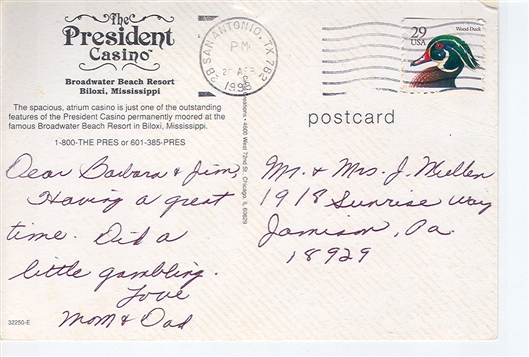 The
President
Casino™
Broadwater Beach Resort
Biloxi, Mississippi
The spacious, atrium casino is just one of the outstanding
features of the President Casino permanently moored at the
famous Broadwater Beach Resort in Biloxi, Mississippi.
1-800-THE PRES or 601-385-PRES
Dear Barbara & Jim,
Having a great
time. Did a
little gambling.
Love
Mom & Dad
32250-E
SAN ANTONIO, TX 782
PM
4600 West 72nd St. Chicago, IL 60629
29
USA
Wood Duck
postcard
Mr. & Mrs. J. Mullen
1918 Sunrise Way
Jamison, Pa.
18929